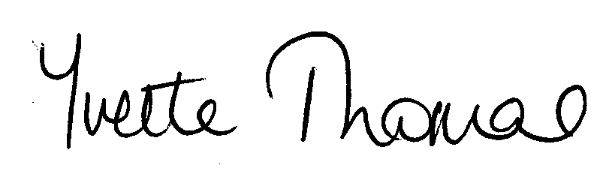 Yvette Thomas